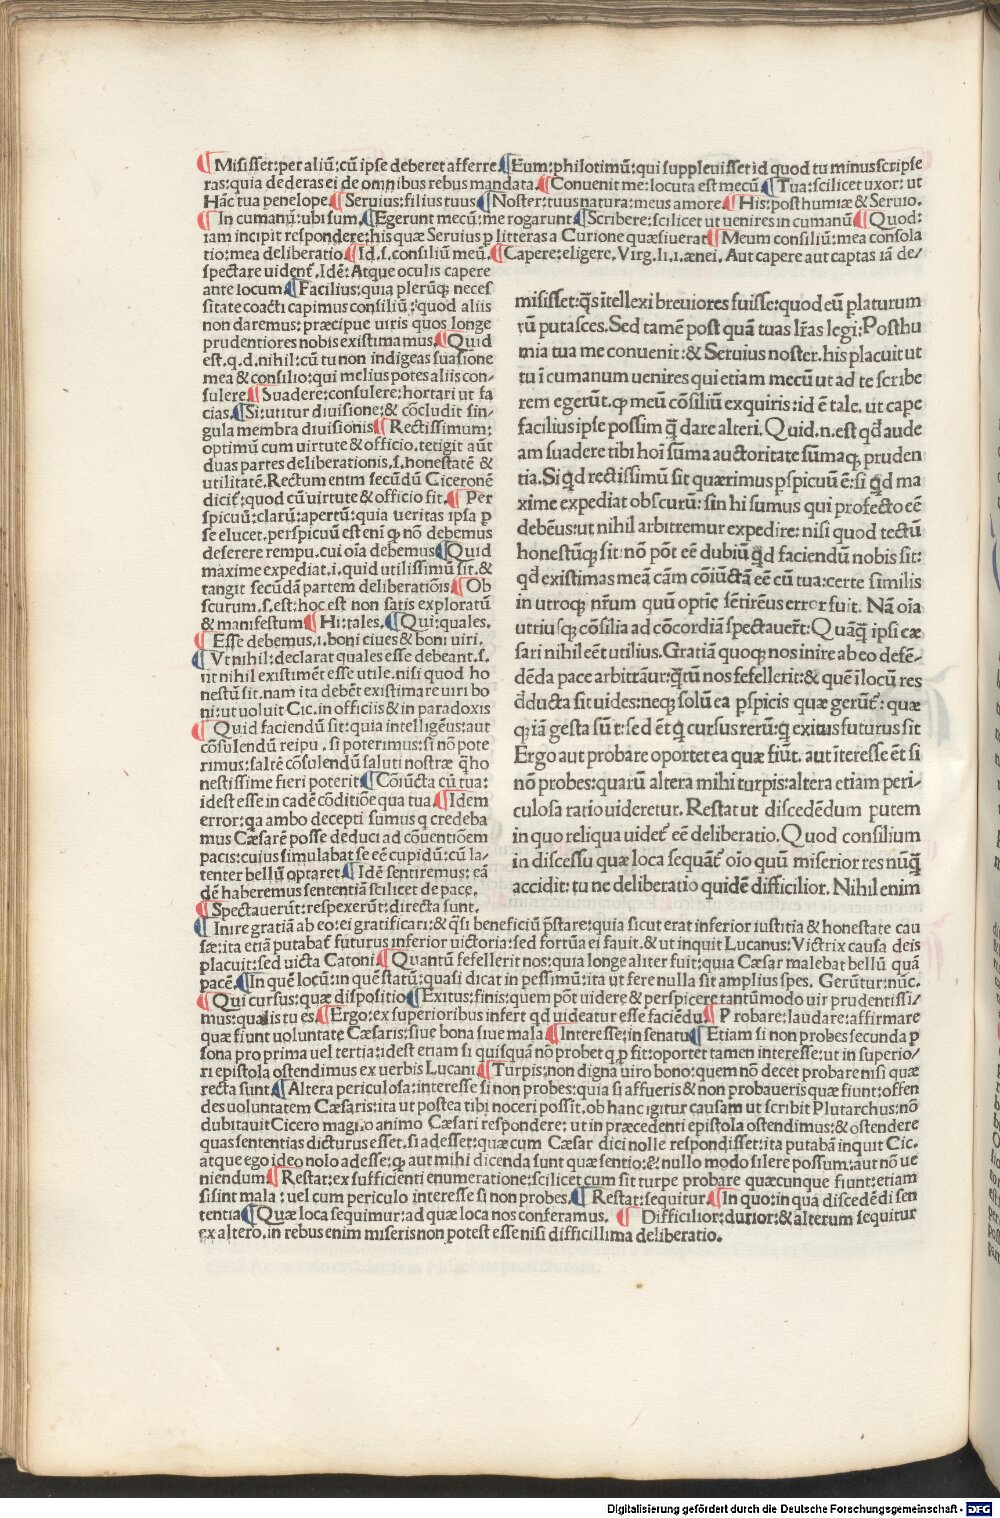 ¶Misisset:per aliũ:cũ ipse deberet afferre¶Eum:philotimũ:qui suppleuisset id quod tu minus scripse
ras:quia dederas ei de omnibus rebus mandata.¶Conuenit me:locuta est mecũ¶Tua:scilicet uxor: ut
Hãc tua penelope.¶Seruius:filius tuus¶Noster:tuus natura:meus amore¶His:posthumiæ & Seruio.
¶In cumanũ:ubi sum.¶Egerunt mecũ:me rogarunt¶Scribere:scilicet ut uenires in cumanũ¶Quod:
iam incipit respondere:his quæ Seruius p litteras a Curione quæsiuerat¶Meum consiliũ:mea consola
tio:mea deliberatio¶Id.s.consiliũ meũ.¶Capere:eligere.Virg.li.i.ænei. Aut capere aut captas iã de/
spectare uident̃.Idẽ:Atque oculis capere
ante locum¶Facilius:quia plerũq; neces
sitate coacti capimus consiliũ:quod aliis
non daremus:præcipue uiris quos longe
prudentiores nobis existimamus.¶Quid
est.q.d.nihil:cũ tu non indigeas suasione
mea & consilio:qui melius potes aliis con/
sulere¶Suadere:consulere:hortari ut fa
cias.¶Si:utitur diuisione:& cõcludit sin/
gula membra diuisionis¶Rectissimum:
optimũ cum uirtute & officio.tetigit aũt
duas partes deliberationis.s.honestatẽ &
utilitatẽ.Rectum enim secũdũ Ciceronẽ
dicit̃:quod cũ uirtute & officio fit.¶Per
spicuũ:clarũ:apertũ:quia ueritas ipsa p
se elucet.perspicuũ est enĩ q̃ nõ debemus
deserere rempu.cui oĩa debemus¶Quid
maxime expediat.i.quid utilissimũ sit.&
tangit secũdã partem deliberatiõis¶Ob
scurum.s.est:hoc est non satis exploratũ
& manifestum¶Hi:tales.¶Qui:quales.
¶Esse debemus.i.boni ciues & boni uiri.
¶Vt nihil:declarat quales esse debeant.s.
ut nihil existimẽt esse utile.nisi quod ho
nestũ sit.nam ita debẽt existimare uiri bo
ni:ut uoluit Cic.in officiis & in paradoxis
¶Quid faciendũ sit:quia intelligẽus:aut
cõsulendũ reipu, si poterimus:si nõ pote
rimus:saltẽ cõsulendũ saluti nostræ q̃ ho
nestissime fieri poterit¶Cõiũcta cũ tua:
idest esse in cadẽ cõditiõe qua tua¶Idem
error:qa ambo decepti sumus q credeba
mus Cæsarẽ posse deduci ad cõuentiõem
pacis:cuius simulabat se eẽ cupidũ:cũ la/
tenter bellũ optaret¶Idẽ sentiremus: eã
dẽ haberemus sententiã scilicet de pace.
¶Spectauerũt:respexerũt:directa sunt.
misisset:q̃s ĩtellexi breuiores fuisse:quod eũ platurum
rũ putasces.Sed tamẽ post quã tuas lr̃as legi:Posthu
mia tua me conuenit:& Seruius noster.his placuit ut
tu ĩ cumanum uenires qui etiam mecũ ut ad te scribe
rem egerũt.q̃ meũ cõsiliũ exquiris:id ẽ tale. ut cape
facilius ipse possim q̃ dare alteri.Quid.n.est qd̃ aude
am suadere tibi hoĩ sũma auctoritate sũmaq; pruden
tia.Si qd rectissimũ sit quærimus pspicuũ ẽ:si qd ma
xime expediat obscurũ:sin hi sumus qui profecto eẽ
debẽus:ut nihil arbitremur expedire:nisi quod tectũ
honestũq; sit:nõ põt eẽ dubiũ qd faciendũ nobis sit:
qd̃ existimas meã cãm cõiũctã eẽ cũ tua:certe similis
in utroq; nr̃um quũ optie sẽtirẽus error fuit. Nã oĩa
utriusq; cõsilia ad cõcordiã spectauer̃t:Quãq̃ ipsi cæ
sari nihil eẽt utilius.Gratiã quoq; nos inire ab eo defẽ/
dẽda pace arbitrãur:q̃tũ nos fefellerit:& quẽ ĩ locũ res
ddducta sit uides:neq; solũ ea pspicis quæ gerũt̃: quæ
q; iã gesta sũt:sed ẽt q̃ cursus rerũ:q̃ exitus futurus sit
Ergo aut probare oportet ea quæ fiũt. aut ĩteresse ẽt si
nõ probes:quarũ altera mihi turpis:altera etiam peri/
culosa ratio uideretur. Restat ut discedẽdum putem
in quo reliqua uidet̃ eẽ deliberatio.Quod consilium
in discessu quæ loca sequãt̃ oĩo quũ miserior res nũq̃
accidit: tu ne deliberatio quidẽ difficilior. Nihil enim
¶Inire gratiã ab eo:ei gratificari:& q̃si beneficiũ p̃stare:quia sicut erat inferior iustitia & honestate cau
sæ:ita etiã putabat̃ futurus inferior uictoria:sed fortũa ei fauit.& ut inquit Lucanus:Victrix causa deis
placuit:sed uicta Catoni¶Quantũ fefellerit nos:quia longe aliter fuit:quia Cæsar malebat bellũ quã
pacẽ¶In quẽ locũ:in quẽ statũ:quasi dicat in pessimũ:ita ut fere nulla sit amplius spes. Gerũtur:nũc.
¶Qui cursus:quæ dispositio¶Exitus:finis:quem põt uidere & perspicere tantũmodo uir prudentissi/
mus:qualis tu es¶Ergo:ex superioribus infert qd uideatur esse faciẽdu¶Probare:laudare:affirmare
quæ fiunt uoluntate Cæsaris:siue bona siue mala¶Interesse:in senatu¶Etiam si non probes secunda p
sona pro prima uel tertia:idest etiam si quisquã nõ probet q p fit:oportet tamen interesse:ut in superio/
ri epistola ostendimus ex uerbis Lucani¶Turpis:non digna uiro bono:quem nõ decet probare nisi quæ
recta sunt¶Altera periculosa:interesse si non probes:quia si affueris & non probaueris quæ fiunt:offen
des uoluntatem Cæsaris:ita ut postea tibi noceri possit.ob hanc igitur causam ut scribit Plutarchus:nõ
dubitauit Cicero magno animo Cæsari respondere: ut in præcedenti epistola ostendimus:& ostendere
quas sententias dicturus esset.si adesset:quæ cum Cæsar dici nolle respondisset:ita putabã inquit Cic.
atque ego ideo nolo adesse:q; aut mihi dicenda sunt quæ sentio:& nullo modo silere possum:aut nõ ue
niendum¶Restat:ex sufficienti enumeratione:scilicet cum sit turpe probare quæcunque fiunt:etiam
si sint mala : uel cum periculo interesse si non probes.¶Restat:sequitur.¶In quo:in qua discedẽdi sen
tentia¶Quæ loca sequimur:ad quæ loca nos conferamus. ¶Difficilior:durior:& alterum sequitur
ex altero.in rebus enim miseris non potest esse nisi difficillima deliberatio.
Digitalisierung gefördert durch die Deutsche Forschungsgemeinschaft - DFG